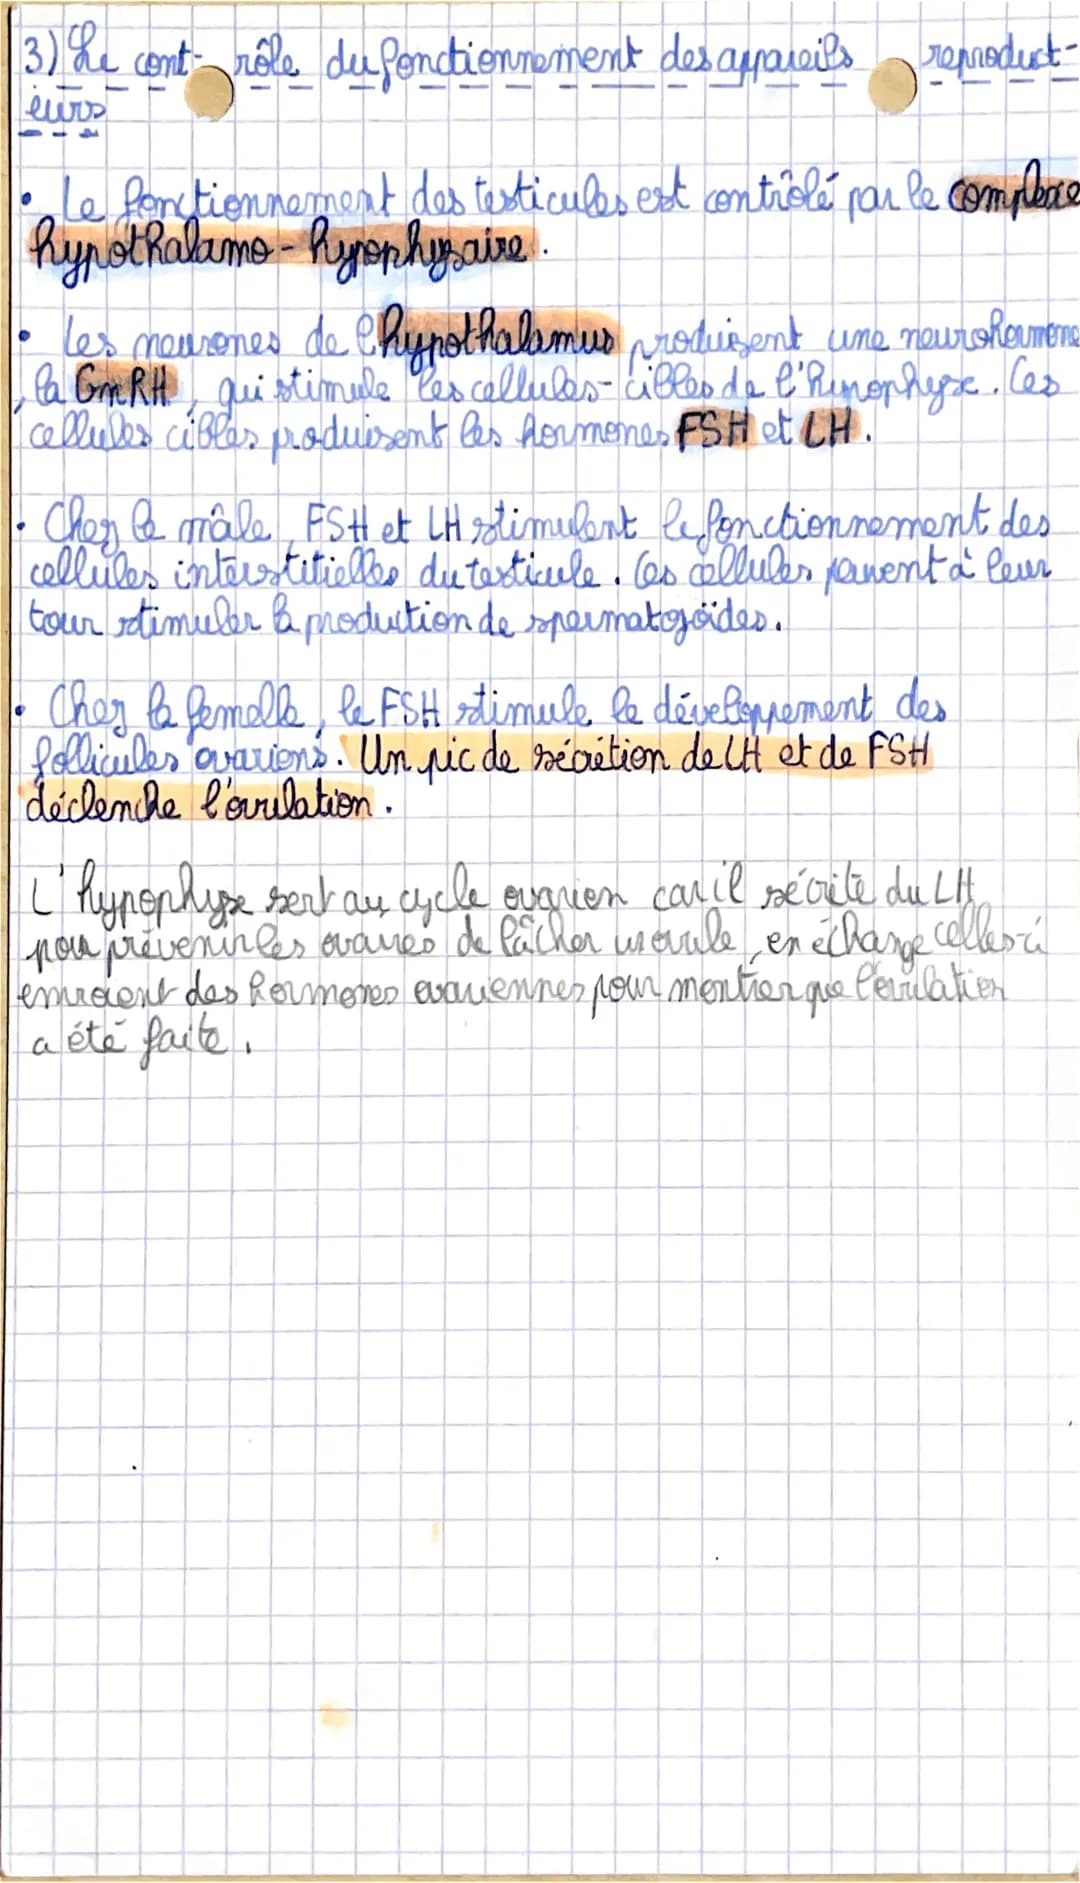 3) Le cont- rôle du fonctionnement des appareils reproduct-
eurs
• Le fonctionnement des testicules est contrôlé par le complexe
hypothalamo-hypophysaire.
• Les neurones de l'hypothalamus produisent une neurohormone
, la GnRH, qui stimule les cellules-cibles de l'hypophyse. Ces
cellules cibles produisent les hormones FSH et LH.
• Chez le mâle, FSH et LH stimulent le fonctionnement des
cellules interstitielles du testicule. Ces cellules peuvent à leur
tour stimuler la production de spermatozoïdes.
• Chez la femelle, le FSH stimule le développement des
follicules ovariens. Un pic de sécrétion de LH et de FSH
déclenche l'ovulation.
L'hypophyse sert au cycle ovarien car il sécrite du LH
pour prévenir les ovaires de lâcher us ovule, en échange celles-ci
envoient des hormones ovariennes pour montrer que l'ovulation
a été faite.